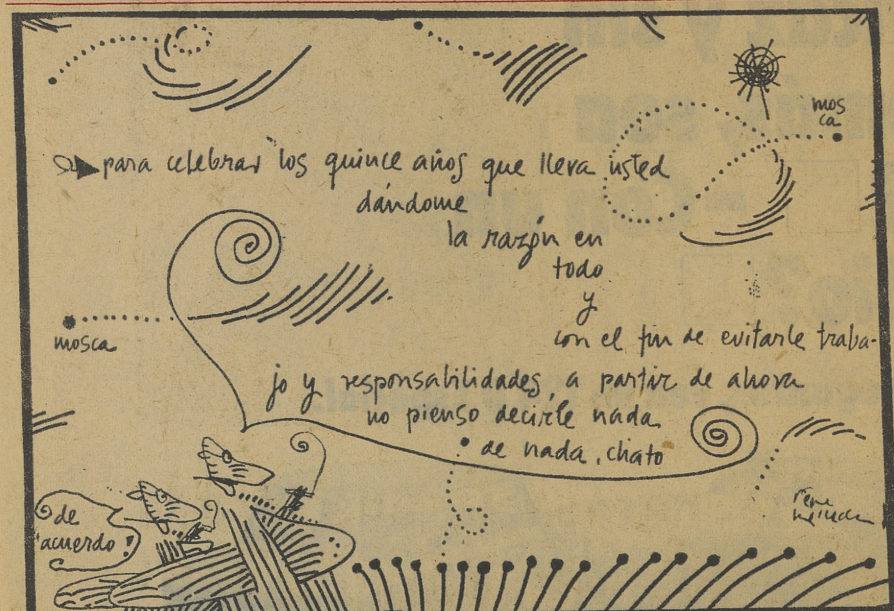 mos
ca
para celebrar los quince años que lleva usted
dándome
la razón en
todo
y
con el fin de evitarle traba-
jo y responsabilidades, a partir de ahora
no pienso decirle nada
de nada, chato
mosca
de
acuerdo